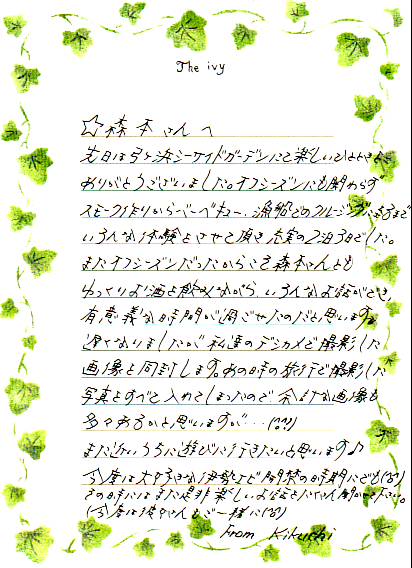 The ivy
☆森本さんへ
先日は弓ヶ浜シーサイドガーデンにて楽しいひとときを
ありがとうございました。オフシーズンにも関わらず
スモーク作りからバーベキュー、漁船でのクルージングに至るまで
いろんな体験をさせて頂き充実の2泊3日でした。
またオフシーズンだったからこそ森本さんとも
ゆっくりお酒を飲みながら、いろんなお話ができ、
有意義な時間が過ごせたのだと思います。
遅くなりましたが私達のデジカメで撮影した
画像を同封します。あの時の旅行で撮影した
写真をすべて入れてしまったので余計な画像も
多々あるかと思いますが…(汗)
また近いうちに遊びに行きたいと思います♪
今度は大好きな伊勢エビ解禁の時期にでも(笑)
その時にはまた是非楽しいお話をたくさん聞かせて下さい。
(今度は彼女さんもご一緒に(笑)
From Kikuchi